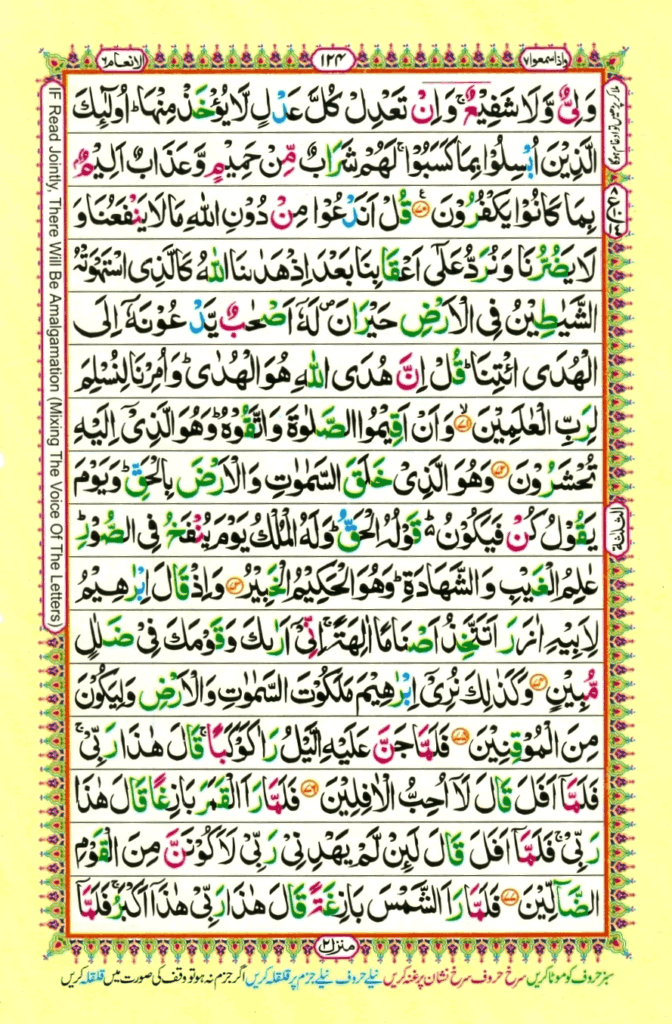 واذا سمعوا ٧
١٢٤
الانعام ٦
وَلِیٌّ وَّلَا شَفِیْعٌ ۚ وَاِنْ تَعْدِلْ كُلَّ عَدْلٍ لَّا یُؤْخَذْ مِنْهَا ؕ اُولٰٓئِكَ
الَّذِیْنَ اُبْسِلُوْا بِمَا كَسَبُوْا ۚ لَهُمْ شَرَابٌ مِّنْ حَمِیْمٍ وَّعَذَابٌ اَلِیْمٌۢ
بِمَا كَانُوْا یَكْفُرُوْنَ ﴿۷۰﴾ قُلْ اَنَدْعُوْا مِنْ دُوْنِ اللّٰهِ مَا لَا یَنْفَعُنَا وَ
لَا یَضُرُّنَا وَنُرَدُّ عَلٰۤی اَعْقَابِنَا بَعْدَ اِذْ هَدٰىنَا اللّٰهُ كَالَّذِی اسْتَهْوَتْهُ
الشَّیٰطِیْنُ فِی الْاَرْضِ حَیْرَانَ ۪ لَهٗۤ اَصْحٰبٌ یَّدْعُوْنَهٗۤ اِلَی
الْهُدَی ائْتِنَا ؕ قُلْ اِنَّ هُدَی اللّٰهِ هُوَ الْهُدٰی ؕ وَاُمِرْنَا لِنُسْلِمَ
لِرَبِّ الْعٰلَمِیْنَ ﴿۷۱﴾ۙ وَاَنْ اَقِیْمُوا الصَّلٰوةَ وَاتَّقُوْهُ ؕ وَهُوَ الَّذِیْۤ اِلَیْهِ
تُحْشَرُوْنَ ﴿۷۲﴾ وَهُوَ الَّذِیْ خَلَقَ السَّمٰوٰتِ وَالْاَرْضَ بِالْحَقِّ ؕ وَیَوْمَ
یَقُوْلُ كُنْ فَیَكُوْنُ ؕ۬ قَوْلُهُ الْحَقُّ ؕ وَلَهُ الْمُلْكُ یَوْمَ یُنْفَخُ فِی الصُّوْرِ ؕ
عٰلِمُ الْغَیْبِ وَالشَّهَادَةِ ؕ وَهُوَ الْحَكِیْمُ الْخَبِیْرُ ﴿۷۳﴾ وَاِذْ قَالَ اِبْرٰهِیْمُ
لِاَبِیْهِ اٰزَرَ اَتَتَّخِذُ اَصْنَامًا اٰلِهَةً ۚ اِنِّیْۤ اَرٰىكَ وَقَوْمَكَ فِیْ ضَلٰلٍ
مُّبِیْنٍ ﴿۷۴﴾ وَكَذٰلِكَ نُرِیْۤ اِبْرٰهِیْمَ مَلَكُوْتَ السَّمٰوٰتِ وَالْاَرْضِ وَلِیَكُوْنَ
مِنَ الْمُوْقِنِیْنَ ﴿۷۵﴾ فَلَمَّا جَنَّ عَلَیْهِ الَّیْلُ رَاٰ كَوْكَبًا ۚ قَالَ هٰذَا رَبِّیْ ۚ
فَلَمَّاۤ اَفَلَ قَالَ لَاۤ اُحِبُّ الْاٰفِلِیْنَ ﴿۷۶﴾ فَلَمَّا رَاَ الْقَمَرَ بَازِغًا قَالَ هٰذَا
رَبِّیْ ۚ فَلَمَّاۤ اَفَلَ قَالَ لَىِٕنْ لَّمْ یَهْدِنِیْ رَبِّیْ لَاَكُوْنَنَّ مِنَ الْقَوْمِ
الضَّآلِّیْنَ ﴿۷۷﴾ فَلَمَّا رَاَ الشَّمْسَ بَازِغَةً قَالَ هٰذَا رَبِّیْ هٰذَاۤ اَكْبَرُ ۚ فَلَمَّاۤ
منزل ٢
سبز حروف کو موٹا کریں سرخ حروف سرخ نشان پر غنہ کریں نیلے حروف نیلے جزم پر قلقلہ کریں اگر جزم نہ ہو تو وقف کی صورت میں قلقلہ کریں
IF Read Jointly, There Will Be Amalgamation (Mixing The Voice Of The Letters)
ملا کر پڑھیں تو ادغام ہوگا
الثلٰثة